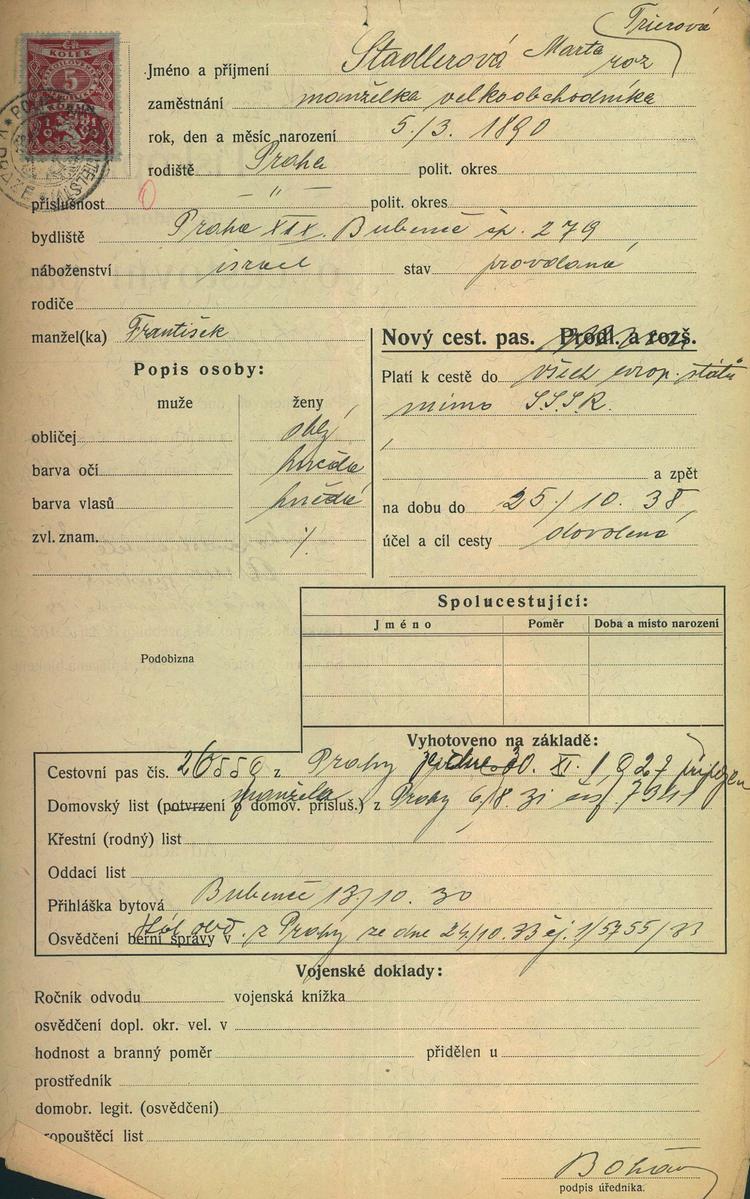 Trierová
Jméno a příjmení Stadlerová Marta roz
zaměstnání manželka velkoobchodníka
rok, den a měsíc narození 5./3. 1890
rodiště Praha polit. okres
příslušnost — " — polit. okres
bydliště Praha XIX. Bubeneč čp. 279
náboženství israel stav provdaná
rodiče
manžel(ka) František
Nový cest. pas. Prodl. a rozš.
Popis osoby:
muže ženy
obličej oblý
barva očí hnědá
barva vlasů hnědé
zvl. znam. %
Platí k cestě do všech evrop. států
mimo S.S.S.R.
a zpět
na dobu do 25./10. 38
účel a cíl cesty dovolená
Spolucestující:
Jméno Poměr Doba a místo narození
Podobizna
Vyhotoveno na základě:
Cestovní pas čís. 26559 z Prahy ze dne 30. XI. 1927
manžela
Domovský list (potvrzení o domov. přísluš.) z Prahy 6/8. 31 čís. 7341
Křestní (rodný) list
Oddací list
Přihláška bytová Bubeneč 13/10. 30
Osvědčení berní správy v z Prahy ze dne 24/10. 33 čj. 1/5755/33
Vojenské doklady:
Ročník odvodu vojenská knížka
osvědčení dopl. okr. vel. v
hodnost a branný poměr přidělen u
prostředník
domobr. legit. (osvědčení)
propouštěcí list
podpis úředníka.
KOLEK
5